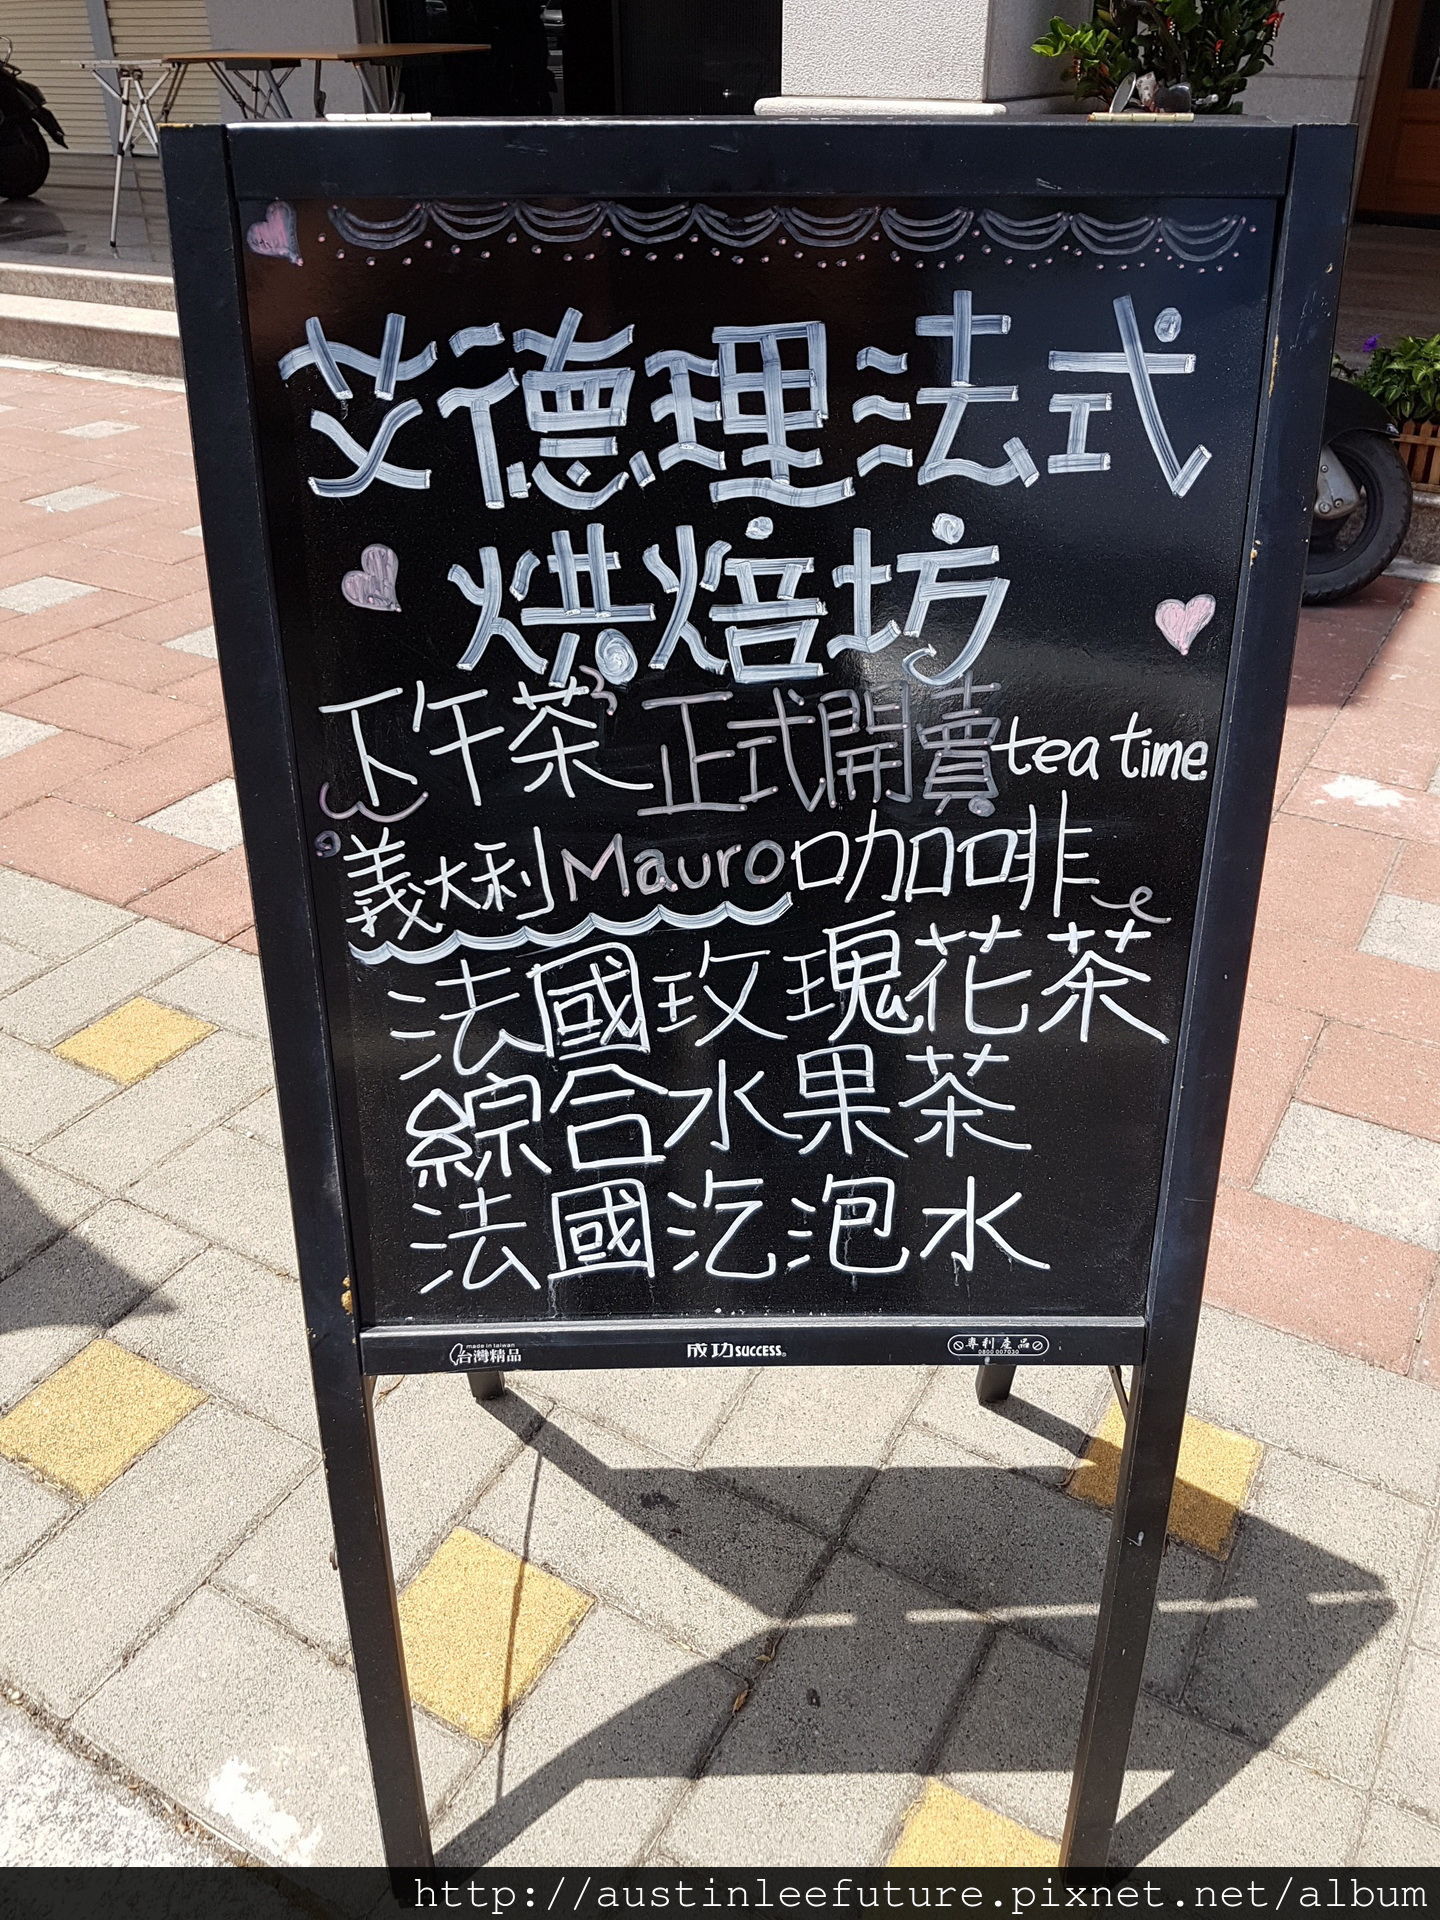 艾德理法式
烘焙坊
下午茶 正式開賣 tea time
義大利Mauro咖啡
法國玫瑰花茶
綜合水果茶
法國汽泡水
made in taiwan
台灣精品
成功 SUCCESS
專利產品
0800 007030
http://austinleefuture.pixnet.net/album